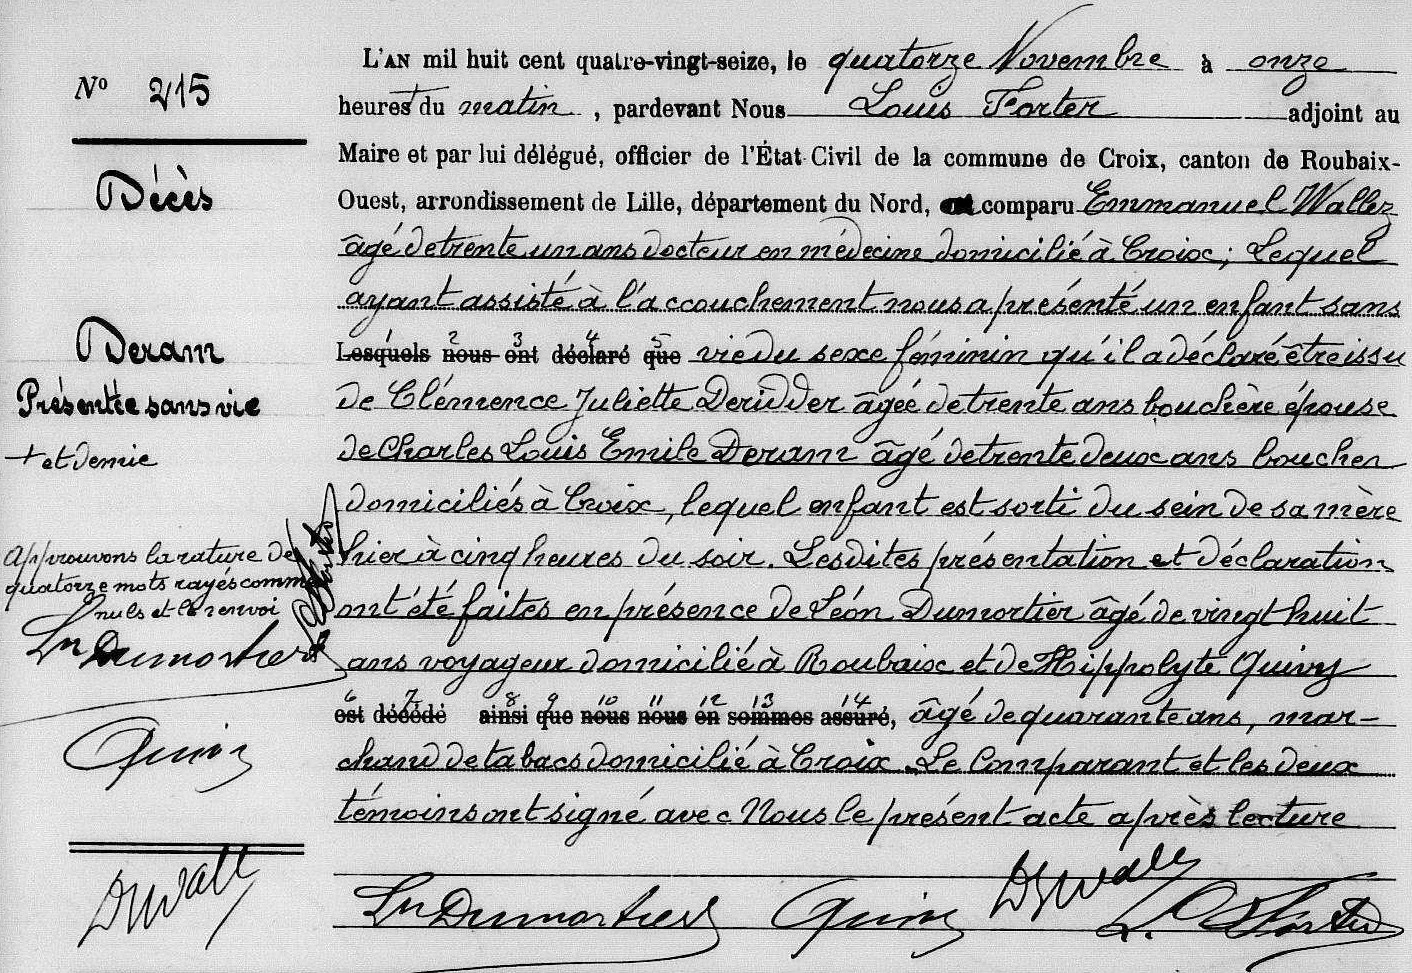 N° 215
Décès
Deram
Présentée sans vie
+ et demie
Approuvons la rature de
quatorze mots rayés comme
nuls et le renvoi
Ln Dumortier
Quivy
L'AN mil huit cent quatre-vingt-seize, le quatorze Novembre à onze
heures + du matin, pardevant Nous Louis Forter adjoint au
Maire et par lui délégué, officier de l'État-Civil de la commune de Croix, canton de Roubaix-
Ouest, arrondissement de Lille, département du Nord, a comparu Emmanuel Wallez
âgé de trente un ans docteur en médecine domicilié à Croix; Lequel
ayant assisté à l'accouchement nous a présenté un enfant sans
Lesquels 2 nous 3 ont 4 déclaré 5 que vie du sexe féminin qu'il a déclaré être issu
de Clémence Juliette Deridder âgée de trente ans bouchère épouse
de Charles Louis Emile Deram âgé de trente deux ans boucher
domiciliés à Croix, lequel enfant est sorti du sein de sa mère
hier à cinq heures du soir. Lesdites présentation et déclaration
ont été faites en présence de Léon Dumortier âgé de vingt huit
ans voyageur domicilié à Roubaix et de Hippolyte Quivy
6 est 7 décédé 8 ainsi 9 que 10 nous 11 nous 12 en 13 sommes 14 assuré, âgé de quarante ans, mar-
chand de tabacs domicilié à Croix. Le Comparant et les deux
témoins ont signé avec Nous le présent acte après lecture
Ln Dumortier Quivy